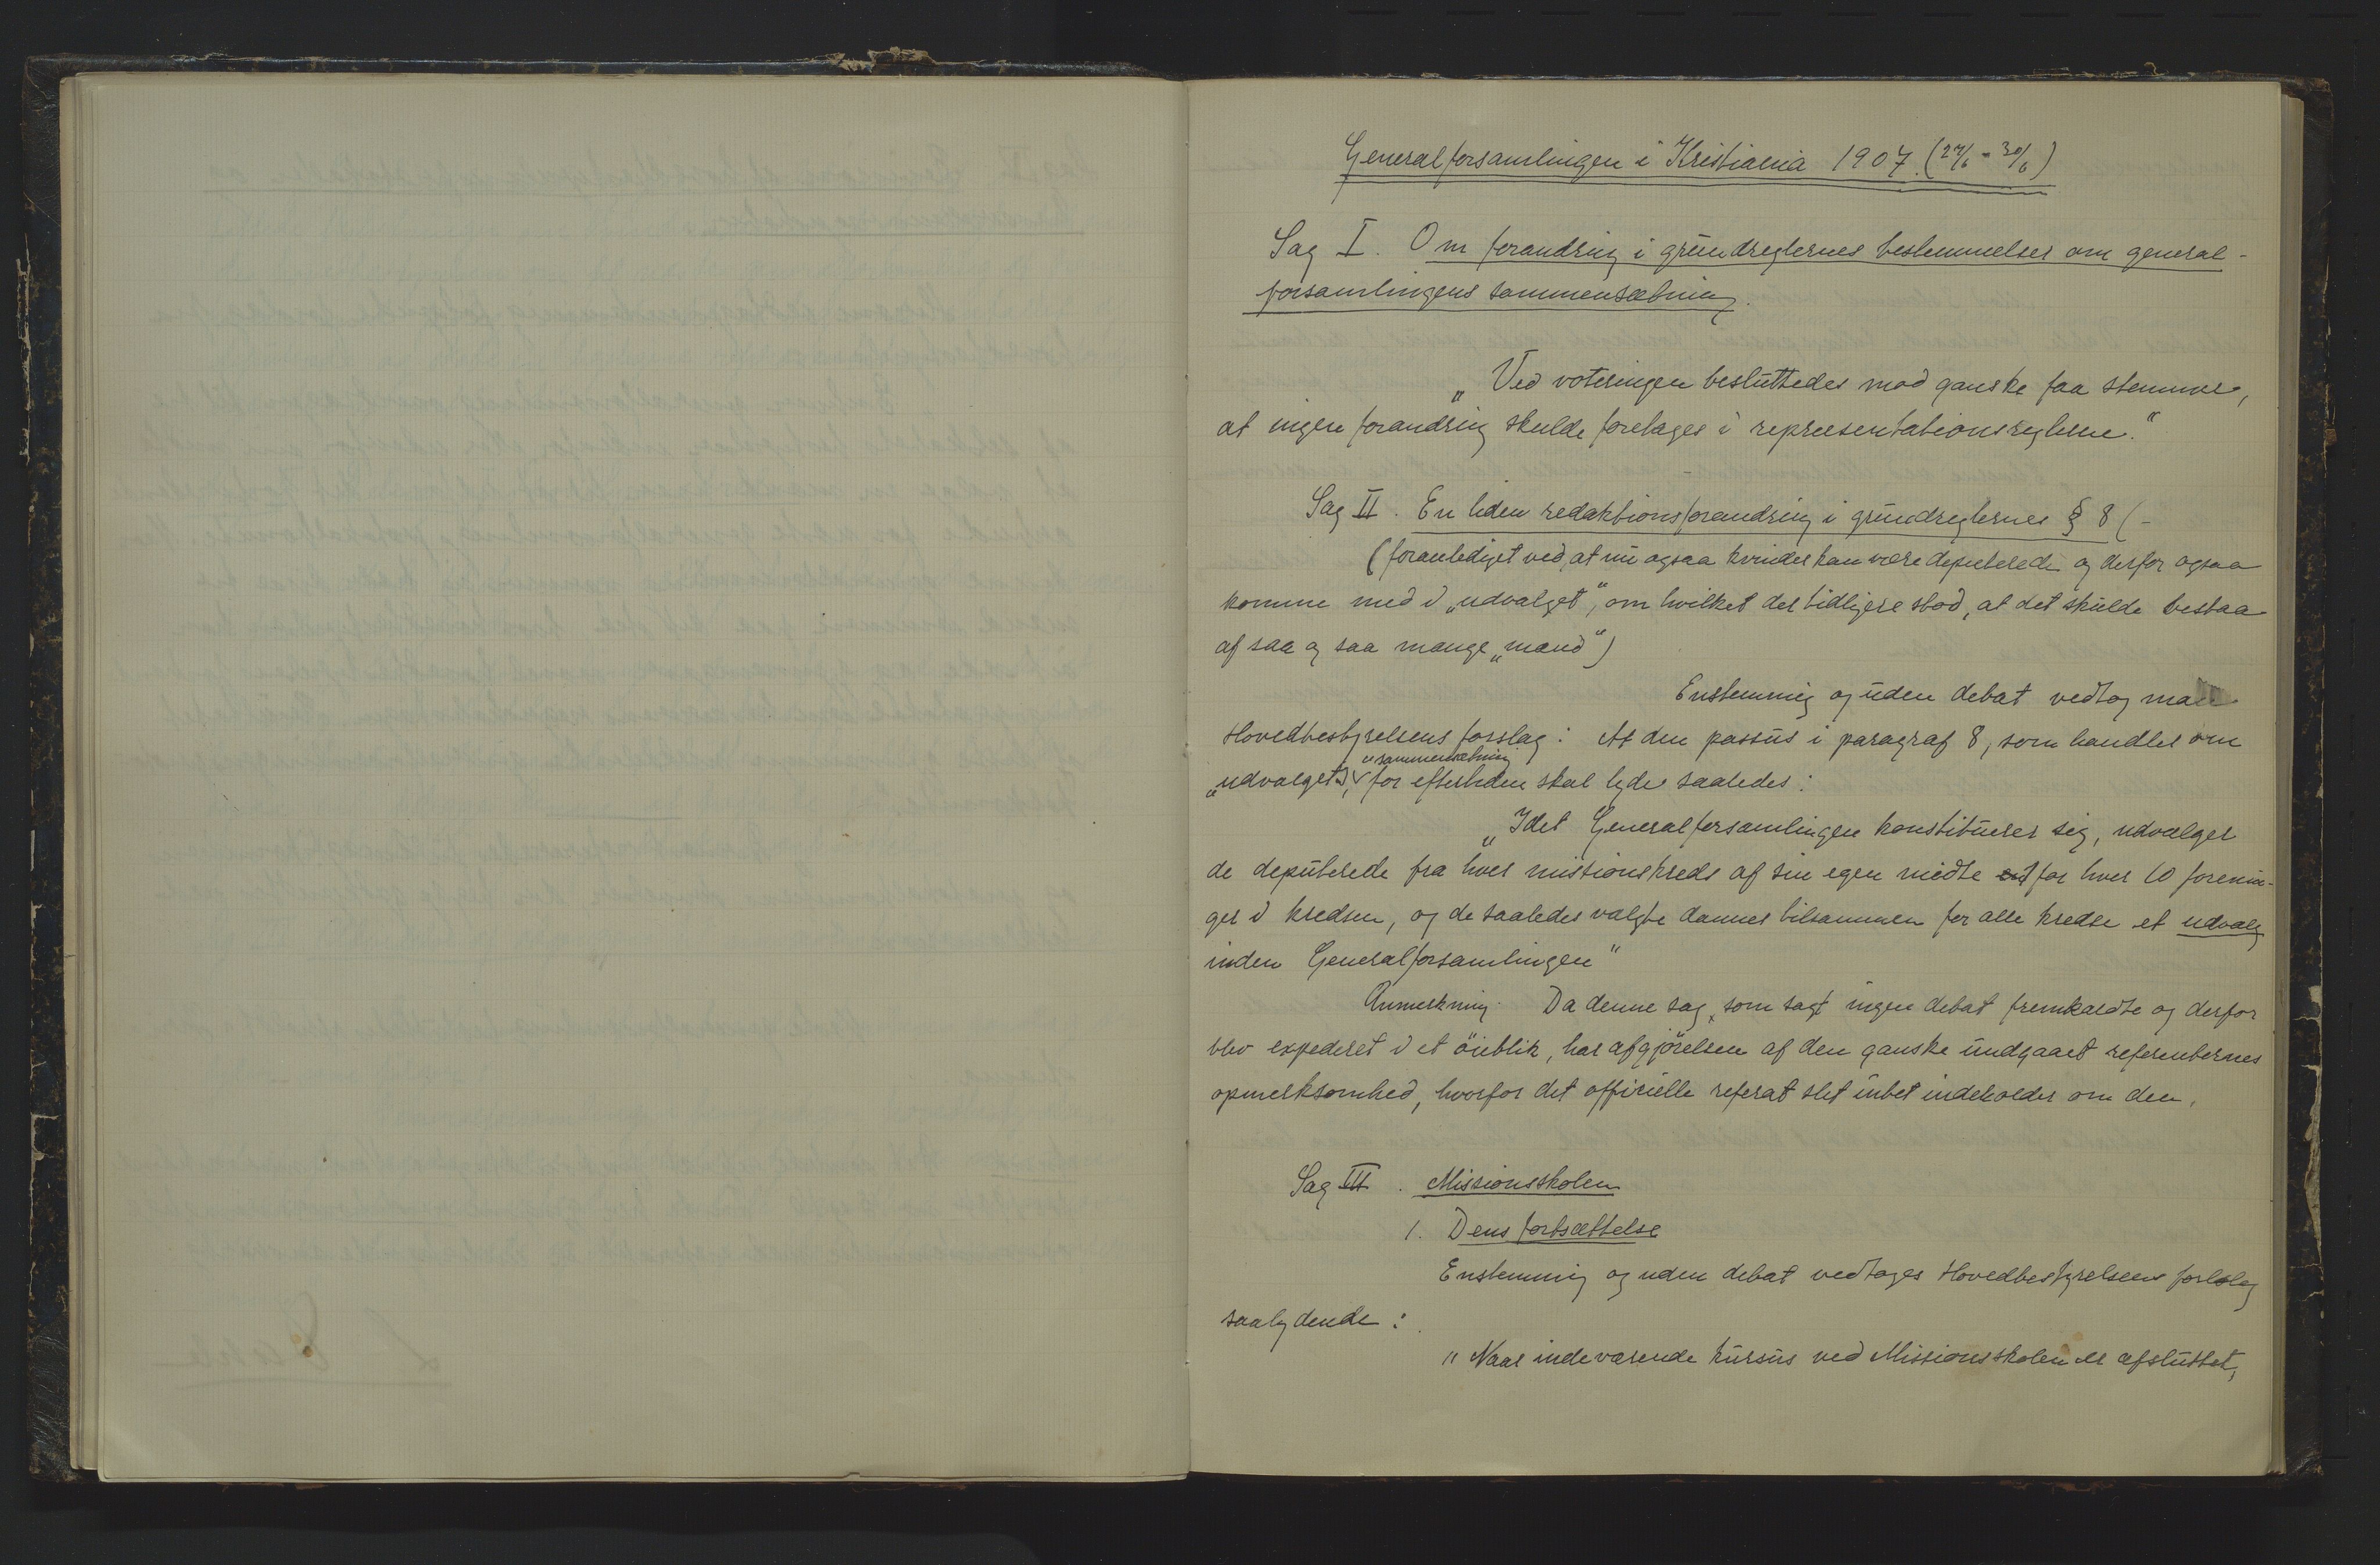 Generalforsamlingen i Kristiania 1907. (27/6 - 30/6)
Sag I. Om forandring i grundreglernes bestemmelser om general-
forsamlingens sammensætning.
„Ved voteringen besluttedes mod ganske faa stemmer,
at ingen forandring skulde foretages i repræsentationsreglerne."
Sag II. En liden redaktionsforandring i grundreglernes § 8 (-
(foranlediget ved, at nu ogsaa kvinder kan være deputerede og derfor ogsaa
komme med i „udvalget", om hvilket der tidligere stod, at det skulde bestaa
af saa og saa mange „mænd")
Enstemmig og uden debat vedtog man
Hovedbestyrelsens forslag: At den passus i paragraf 8, som handler om
"sammensætning
„udvalgets, for eftertiden skal lyde saaledes:
„Idet Generalforsamlingen konstituerer sig, udvælger
de deputerede fra hver missionskreds af sin egen midte en for hver 10 forenin-
ger i kredsen, og de saaledes valgte danner tilsammen for alle kredse et udvalg
inden Generalforsamlingen"
Anmerkning. Da denne sag, som sagt ingen debat fremkaldte og derfor
blev expederet i et öieblik, har afgjörelsen af den ganske undgaaet referenternes
opmerksomhed, hvorfor det officielle referat slet intet indeholder om den.
Sag III. Missionsskolen
1. Dens fortsættelse
Enstemmig og uden debat vedtoges Hovedbestyrelsens forslag
saalydende:
"Naar indeværende kursus ved Missionsskolen er afsluttet,